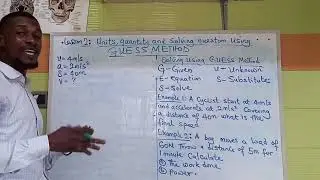 Lesson 2: Units, quantity and Solving question Using
GUESS METHOD
u = 4m/s
a = 2m/s²
S = 40m
V = ?
Solving Using GUESS Method
G - Given
U - Unknown
E - equation
S - Substitutes
S - Solve
Example 1: A Cyclist start at 4m/s
and accelerate at 2m/s² Covering
a distance of 40m what is the
final speed
Example 2: A boy moves a load of
60N Through a distance of 5m for
1 minute Calculate
the work done
power.